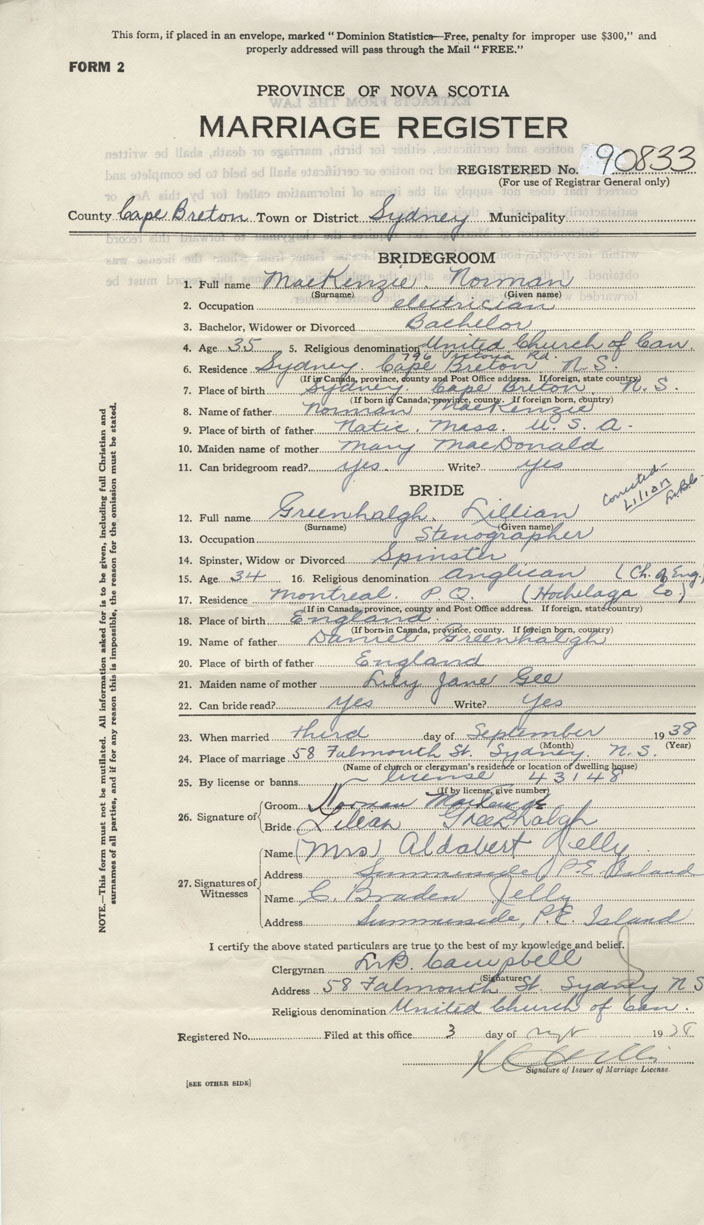 This form, if placed in an envelope, marked "Dominion Statistics—Free, penalty for improper use $300," and
properly addressed will pass through the Mail "FREE."
FORM 2
PROVINCE OF NOVA SCOTIA
MARRIAGE REGISTER
REGISTERED No. 90833
(For use of Registrar General only)
County Cape Breton Town or District Sydney Municipality
BRIDEGROOM
1. Full name MacKenzie. Norman
(Surname) (Given name)
2. Occupation electrician
3. Bachelor, Widower or Divorced Bachelor
4. Age 35 5. Religious denomination United Church of Can.
796 Victoria Rd.
6. Residence Sydney. Cape Breton N.S.
(If in Canada, province, county and Post Office address. If foreign, state country)
7. Place of birth Sydney. Cape Breton N.S.
(If born in Canada, province, county. If foreign born, country)
8. Name of father Norman MacKenzie
9. Place of birth of father Natic. Mass. U.S.A.
10. Maiden name of mother Mary MacDonald
11. Can bridegroom read? yes. Write? yes
BRIDE
Corrected-
LILIAN
L.B.C.
12. Full name Greenhalgh. Lillian
(Surname) (Given name)
13. Occupation Stenographer
14. Spinster, Widow or Divorced Spinster
15. Age 34 16. Religious denomination Anglican (Ch. of Eng.)
17. Residence Montreal. P.Q. (Hochelaga Co.)
(If in Canada, province, county and Post Office address. If foreign, state country)
18. Place of birth England.
(If born in Canada, province, county. If foreign born, country)
19. Name of father Daniel Greenhalgh
20. Place of birth of father England
21. Maiden name of mother Lily Jane Gee
22. Can bride read? Yes Write? Yes
23. When married third day of September 1938
(Month) (Year)
24. Place of marriage 58 Falmouth St. Sydney. N.S.
(Name of church or clergyman's residence or location of dwelling house)
25. By license or banns license 43148
(If by license, give number)
26. Signature of Groom Norman MacKenzie
Bride Lilian Greenhalgh
27. Signatures of Witnesses
Name (Mrs) Aldabert Jelly
Address Summerside, P.E. Island
Name C. Braden Jelly
Address Summerside, P.E. Island
I certify the above stated particulars are true to the best of my knowledge and belief.
Clergyman L.B. Campbell
(Signature)
Address 58 Falmouth St. Sydney N S
Religious denomination United Church of Can.
Registered No. Filed at this office 3 day of 1938
Signature of Issuer of Marriage License.
[SEE OTHER SIDE]
NOTE.—This form must not be mutilated. All information asked for is to be given, including full Christian and
surnames of all parties, and if for any reason this is impossible, the reason for the omission must be stated.